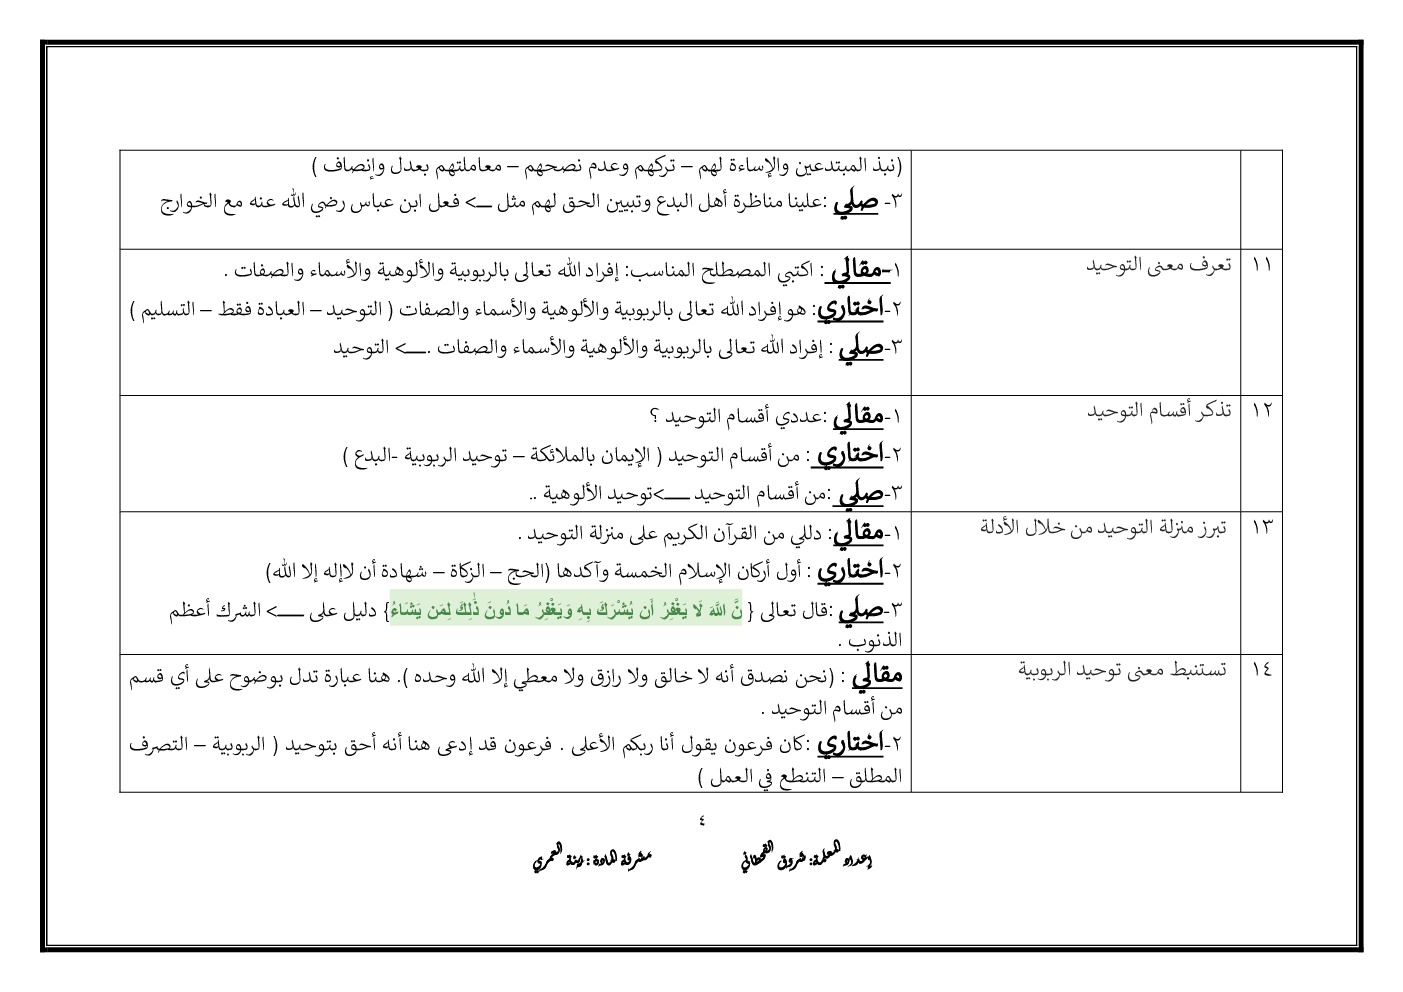 (نبذ المبتدعين والإساءة لهم – تركهم وعدم نصحهم – معاملتهم بعدل وإنصاف )
٣- صلي :علينا مناظرة أهل البدع وتبيين الحق لهم مثل ــــ> فعل ابن عباس رضي الله عنه مع الخوارج
١١ تعرف معنى التوحيد
١-مقالي : اكتبي المصطلح المناسب: إفراد الله تعالى بالربوبية والألوهية والأسماء والصفات .
٢-اختاري: هو إفراد الله تعالى بالربوبية والألوهية والأسماء والصفات ( التوحيد – العبادة فقط – التسليم )
٣-صلي : إفراد الله تعالى بالربوبية والألوهية والأسماء والصفات .ــــ> التوحيد
١٢ تذكر أقسام التوحيد
١-مقالي :عددي أقسام التوحيد ؟
٢-اختاري : من أقسام التوحيد ( الإيمان بالملائكة – توحيد الربوبية -البدع )
٣-صلي :من أقسام التوحيد ــــ>توحيد الألوهية ..
١٣ تبرز منزلة التوحيد من خلال الأدلة
١-مقالي: دللي من القرآن الكريم على منزلة التوحيد .
٢-اختاري : أول أركان الإسلام الخمسة وآكدها (الحج – الزكاة – شهادة أن لاإله إلا الله)
٣-صلي :قال تعالى { نَّ اللَّهَ لَا يَغْفِرُ أَن يُشْرَكَ بِهِ وَيَغْفِرُ مَا دُونَ ذَٰلِكَ لِمَن يَشَاءُ} دليل على ــــ> الشرك أعظم
الذنوب .
١٤ تستنبط معنى توحيد الربوبية
مقالي : (نحن نصدق أنه لا خالق ولا رازق ولا معطي إلا الله وحده ). هنا عبارة تدل بوضوح على أي قسم
من أقسام التوحيد .
٢-اختاري :كان فرعون يقول أنا ربكم الأعلى . فرعون قد إدعى هنا أنه أحق بتوحيد ( الربوبية – التصرف
المطلق – التنطع في العمل )
٤
إعداد المعلمة: شروق القحطاني مشرفة المادة : نبنة العمري